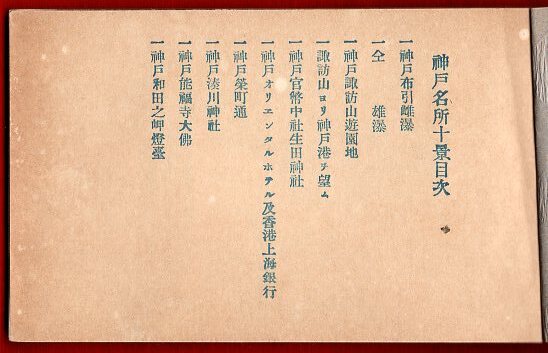 神戸名所十景目次
一神戸布引雌瀑
一仝　雄瀑
一神戸諏訪山遊園地
一諏訪山ヨリ神戸港ヲ望ム
一神戸官幣中社生田神社
一神戸オリエンタルホテル及香港上海銀行
一神戸榮町通
一神戸湊川神社
一神戸能福寺大佛
一神戸和田之岬燈臺